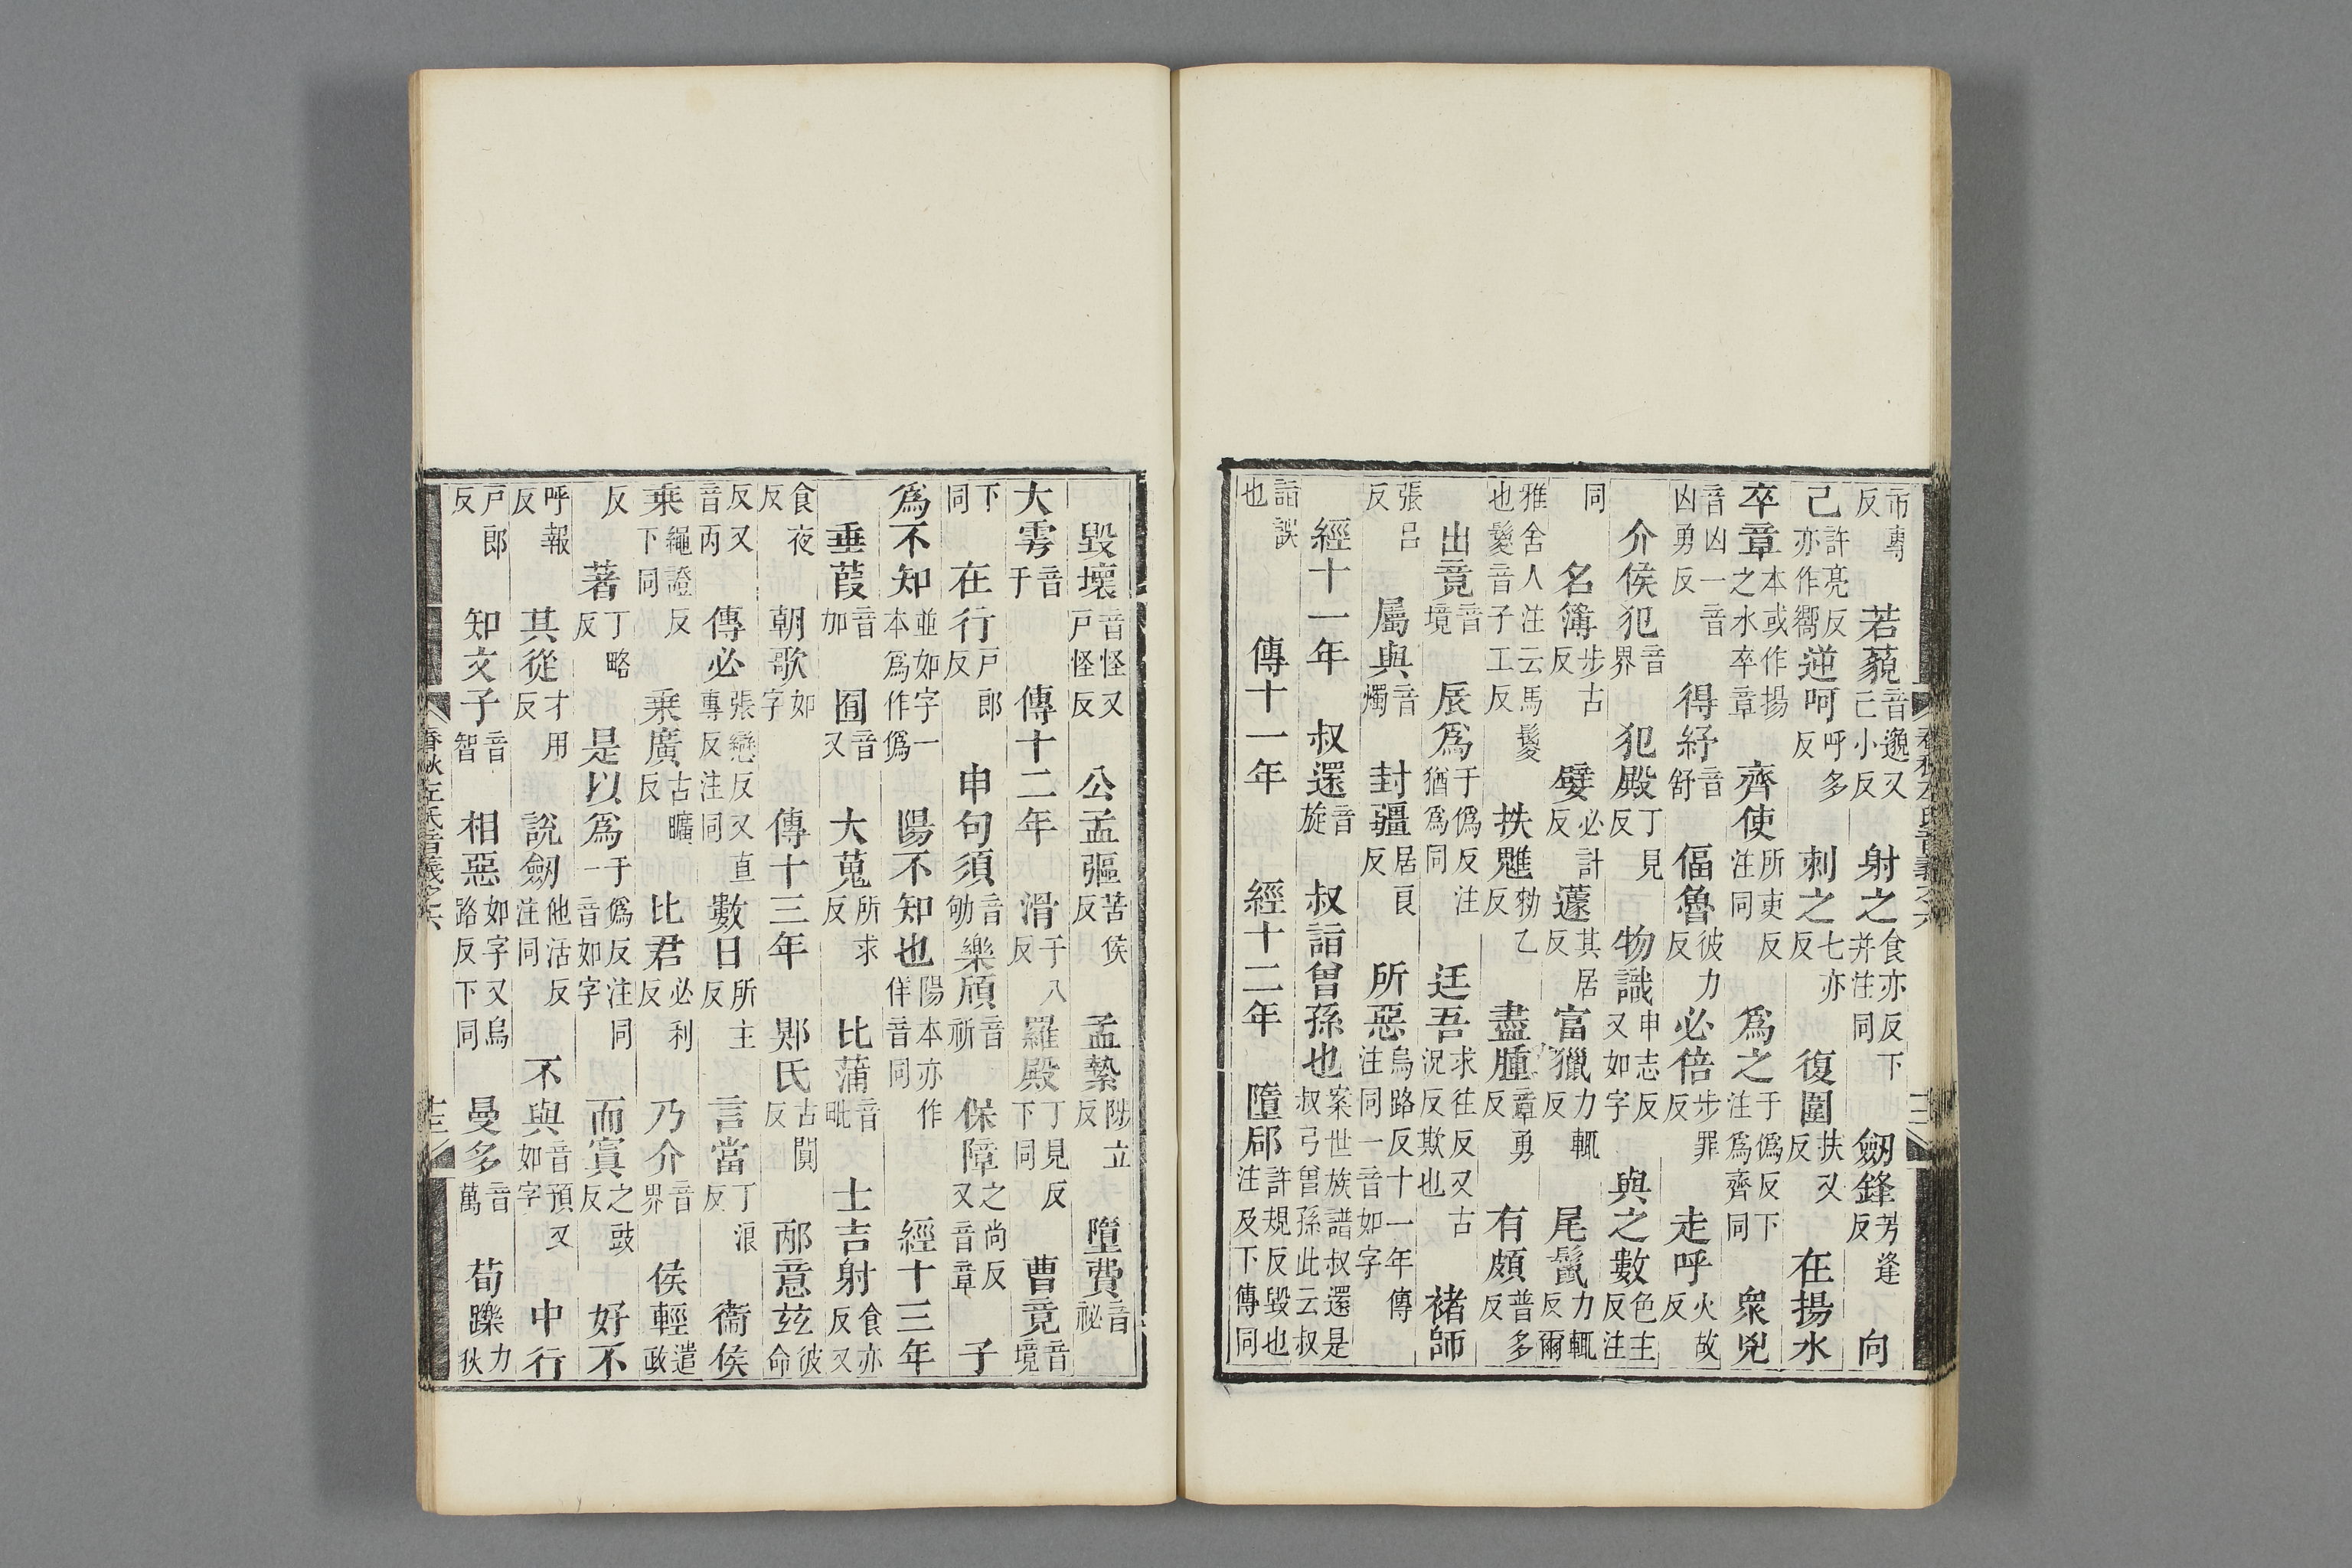 春秋左氏音義之六
市專反 若藐音邈又己小反 射之食亦反下并注同 劒鋒芳逢反 向
己許亮反亦作嚮 逆呵呼多反 刺之七亦反 復圍扶又反 在揚水
卒章本或作揚之水卒章 齊使所吏反注同 爲之于僞反下注爲齊同 衆兇
音凶一音凶勇反 得紓音舒 偪魯彼力反 必倍步罪反 走呼火故反
介侯犯音界 犯殿丁見反 物識申志反又如字 與之數色主反注
同 名簿步古反 嬖必計反 蘧其居反 富獵力輒反 尾鬣力輒反爾
雅舍人注云馬鬉也鬉音子工反 抶魋勑乙反 盡腫章勇反 有頗普多反
出竟音境 辰爲于僞反注猶爲同 迋吾求往反又古況反欺也 褚師
張呂反 屬與音燭 封疆居良反 所惡烏路反十一年傳注同一音如字
經十一年 叔還音旋 叔詣曾孫也案世族譜叔還是叔弓曾孫此云叔
詣誤也 傳十一年 經十二年 墮郈許規反毀也注及下傳同
毀壞音怪又戶怪反 公孟彄苦侯反 孟縶陟立反 墮費音祕
大雩音于 傳十二年 滑于八反 羅殿丁見反下同 曹竟音境
下同 在行戶郎反 申句須音劬 樂頎音祈 保障之尚反又音章 子
爲不知並如字一本爲作僞 陽不知也陽本亦作佯音同 經十三年
垂葭音加 囿音又 大蒐所求反 比蒲音毗 士吉射食亦反又
食夜反 朝歌如字 傳十三年 郹氏古闃反 邴意茲彼命
反又音丙 傳必張戀反又直專反注同 數日所主反 言當丁浪反 衞侯
乗繩證反下同 乗廣古曠反 比君必利反 乃介音界 侯輕遣政
反 著丁略反 是以爲于僞反注同一音如字 而寘之豉反 好不
呼報反 其從才用反 說劒他活反注同 不與音預又如字 中行
戶郎反 知文子音智 相惡如字又烏路反下同 曼多音萬 荀躒力狄
春秋左氏音義之六